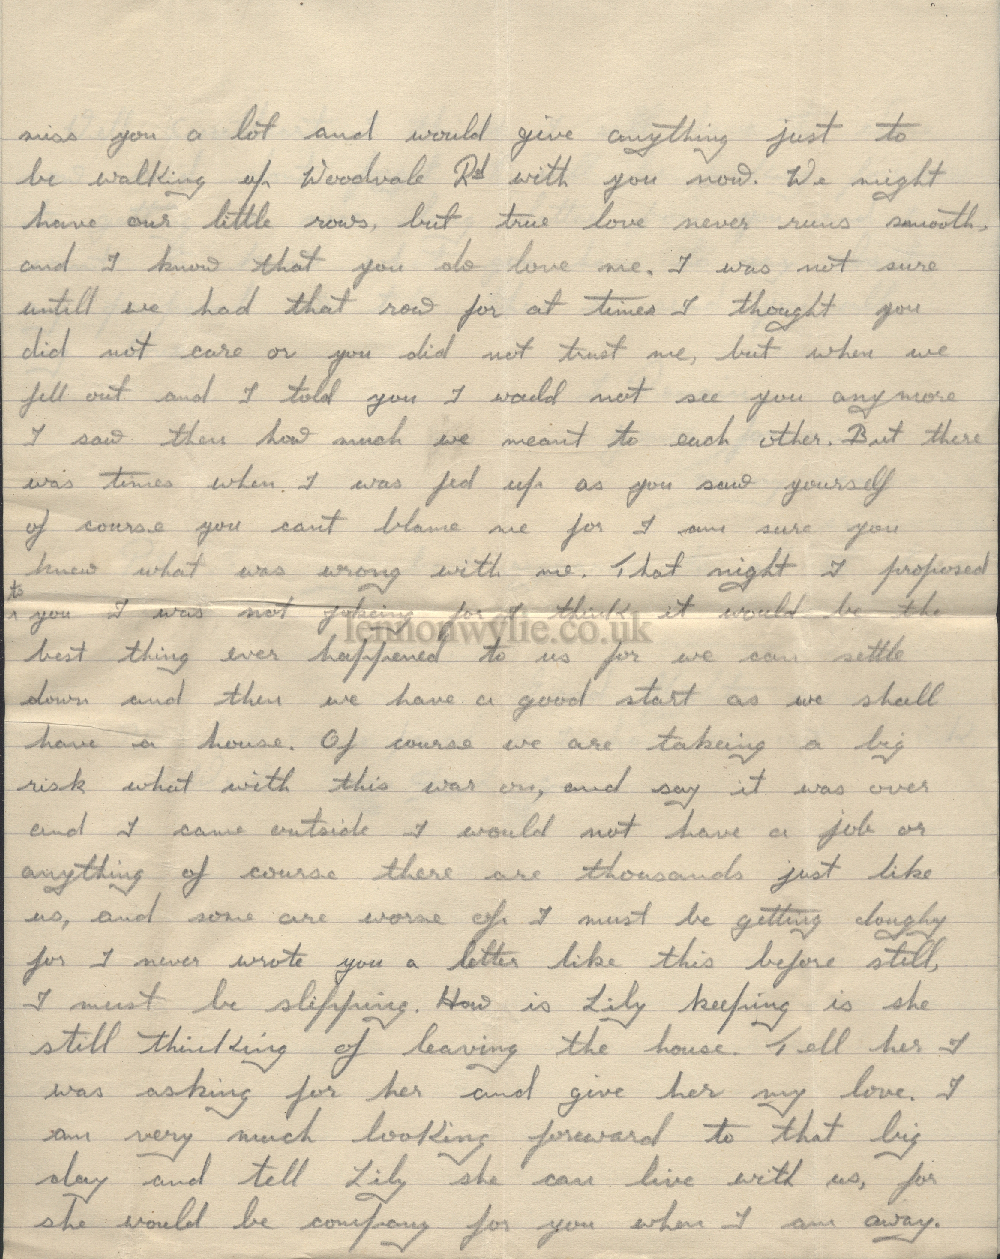 miss you a lot and would give anything just to
be walking up Woodvale Rd with you now. We might
have our little rows, but true love never runs smooth,
and I know that you do love me. I was not sure
untill we had that row for at times I thought you
did not care or you did not trust me, but when we
fell out and I told you I would not see you anymore
I saw then how much we meant to each other. But there
was times when I was fed up as you saw yourself
of course you cant blame me for I am sure you
knew what was wrong with me. That night I proposed
to
you I was not jokeing for I think it would be the
lennonwylie.co.uk
best thing ever happened to us for we can settle
down and then we have a good start as we shall
have a house. Of course we are takeing a big
risk what with this war on, and say it was over
and I came outside I would not have a job or
anything of course there are thousands just like
us, and some are worse off I must be getting doughy
for I never wrote you a letter like this before still,
I must be slipping. How is Lily keeping is she
still thinking of leaving the house. Tell her I
was asking for her and give her my love. I
am very much looking foreward to that big
day and tell Lily she can live with us, for
she would be company for you when I am away.